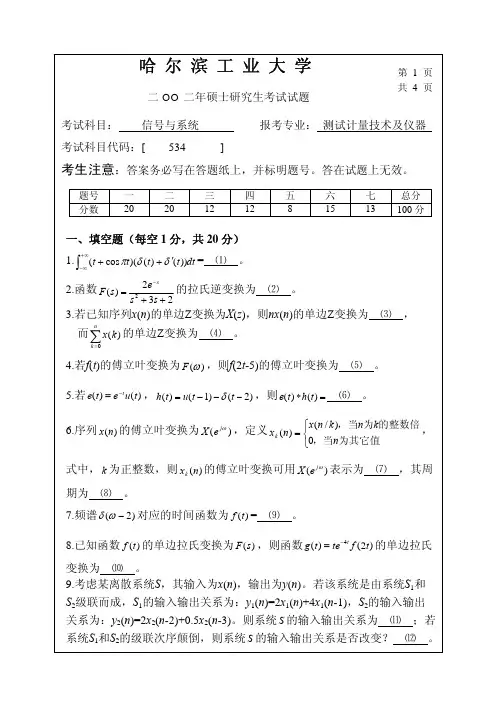 哈 尔 滨 工 业 大 学
第 1 页
共 4 页
二○○二年硕士研究生考试试题
考试科目： 信号与系统 报考专业： 测试计量技术及仪器
考试科目代码：[ 534 ]
考生注意：答案务必写在答题纸上，并标明题号。答在试题上无效。
题号 一 二 三 四 五 六 七 总分
分数 20 20 12 12 8 15 13 100分
一、填空题（每空1分，共20分）
1. ∫_{-∞}^{+∞}(t+cosπt)(δ(t)+δ′(t))dt = ⑴ 。
2.函数 F(s) = 2e^{-s}/(s²+3s+2) 的拉氏逆变换为 ⑵ 。
3.若已知序列x(n)的单边Z变换为X(z)，则nx(n)的单边Z变换为 ⑶ ，
而 ∑_{k=0}^{n} x(k) 的单边Z变换为 ⑷ 。
4.若f(t)的傅立叶变换为F(ω)，则f(2t-5)的傅立叶变换为 ⑸ 。
5.若e(t) = e^{-t}u(t)，h(t) = u(t-1)-δ(t-2)，则e(t)*h(t) = ⑹ 。
6.序列x(n)的傅立叶变换为X(e^{jω})，定义x_k(n) = {x(n/k)，当n为k的整数倍
0，当n为其它值，
式中，k为正整数，则x_k(n)的傅立叶变换可用X(e^{jω})表示为 ⑺ ，其周
期为 ⑻ 。
7.频谱δ(ω-2)对应的时间函数为f(t) = ⑼ 。
8.已知函数f(t)的单边拉氏变换为F(s)，则函数g(t) = te^{-4t}f(2t)的单边拉氏
变换为 ⑽ 。
9.考虑某离散系统S，其输入为x(n)，输出为y(n)。若该系统是由系统S₁和
S₂级联而成，S₁的输入输出关系为：y₁(n)=2x₁(n)+4x₁(n-1)，S₂的输入输出
关系为：y₂(n)=2x₂(n-2)+0.5x₂(n-3)。则系统S的输入输出关系为 ⑾ ；若
系统S₁和S₂的级联次序颠倒，则系统S的输入输出关系是否改变？ ⑿ 。